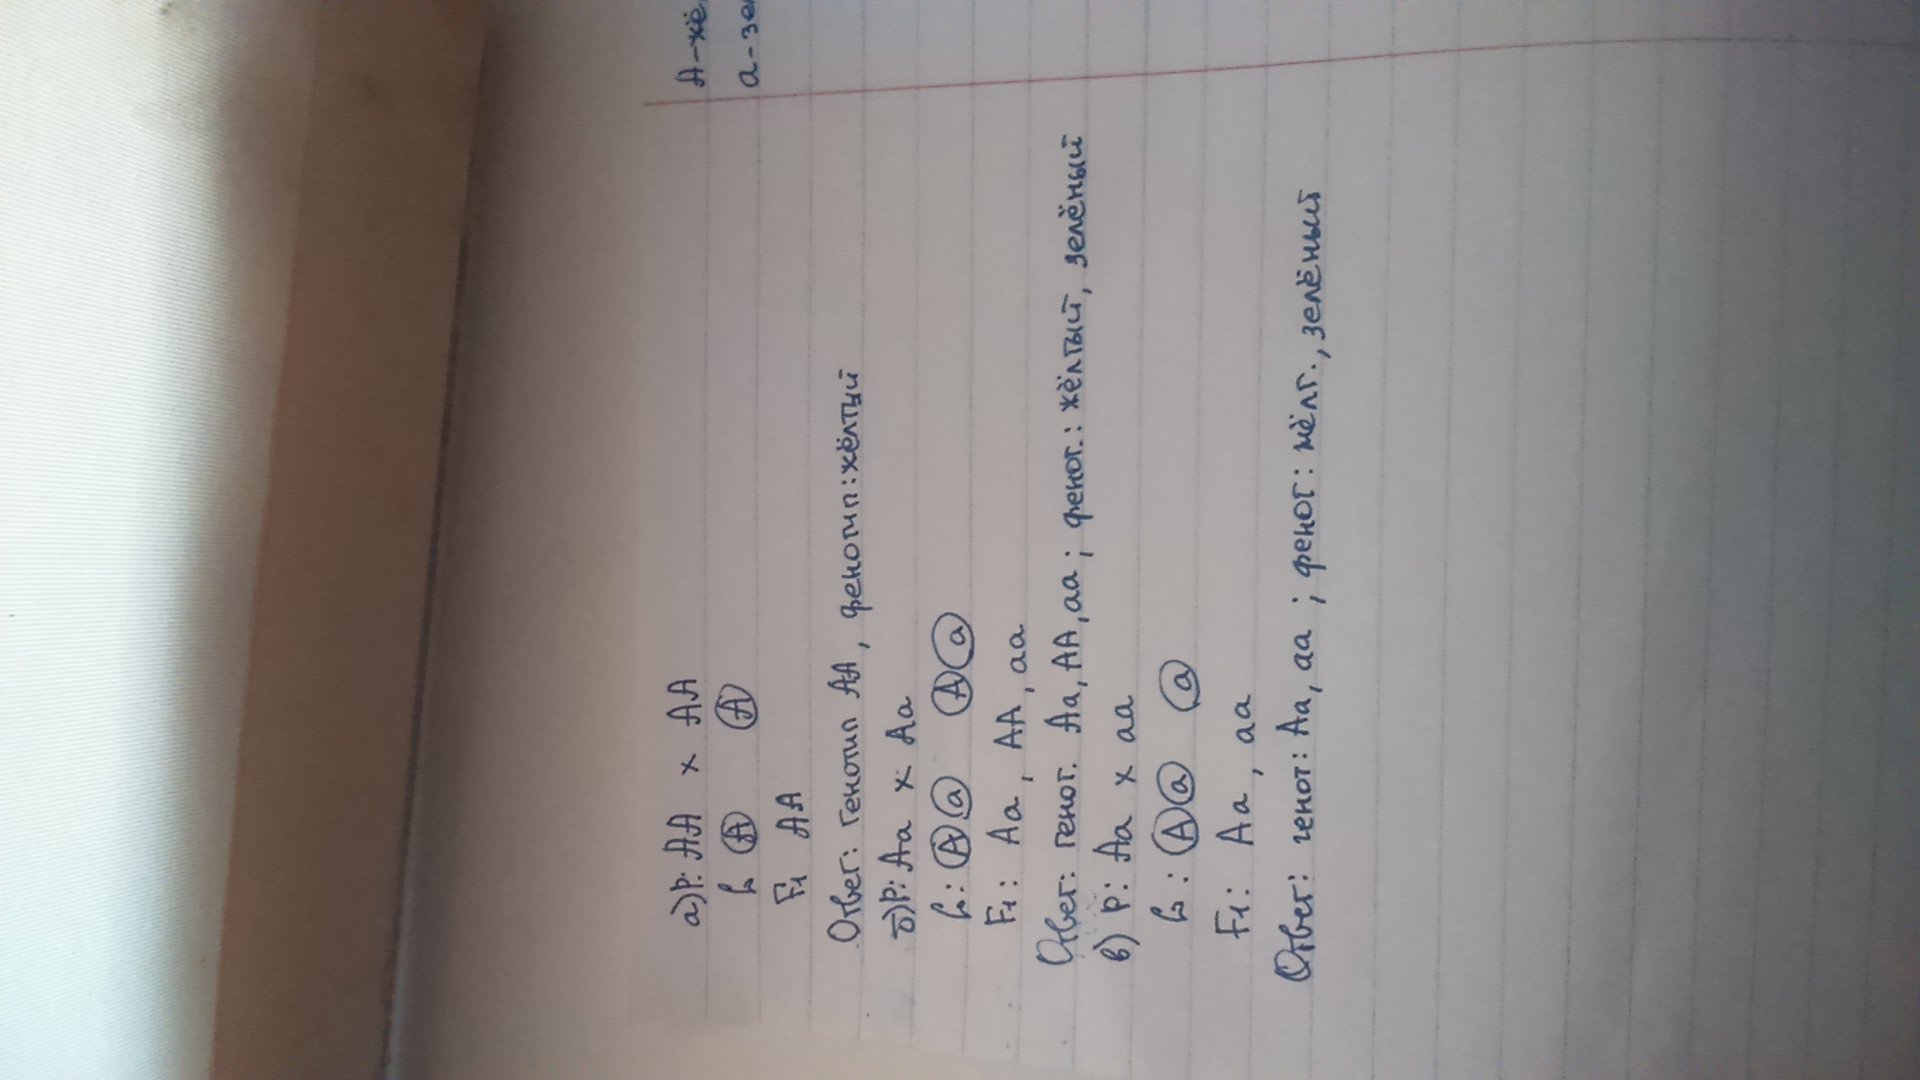 А-жё
а-зе
а) P: AA × AA
G (A) (A)
F1 AA
Ответ: генотип AA, фенотип: жёлтый
б) P: Aa × Aa
G: (A) (a) (A) (a)
F1: Aa, AA, aa
Ответ: генот. Aa, AA, aa; фенот.: жёлтый, зелёный
в) P: Aa × aa
G: (A) (a) (a)
F1: Aa, aa
Ответ: генот: Aa, aa; фенот: жёлт., зелёный